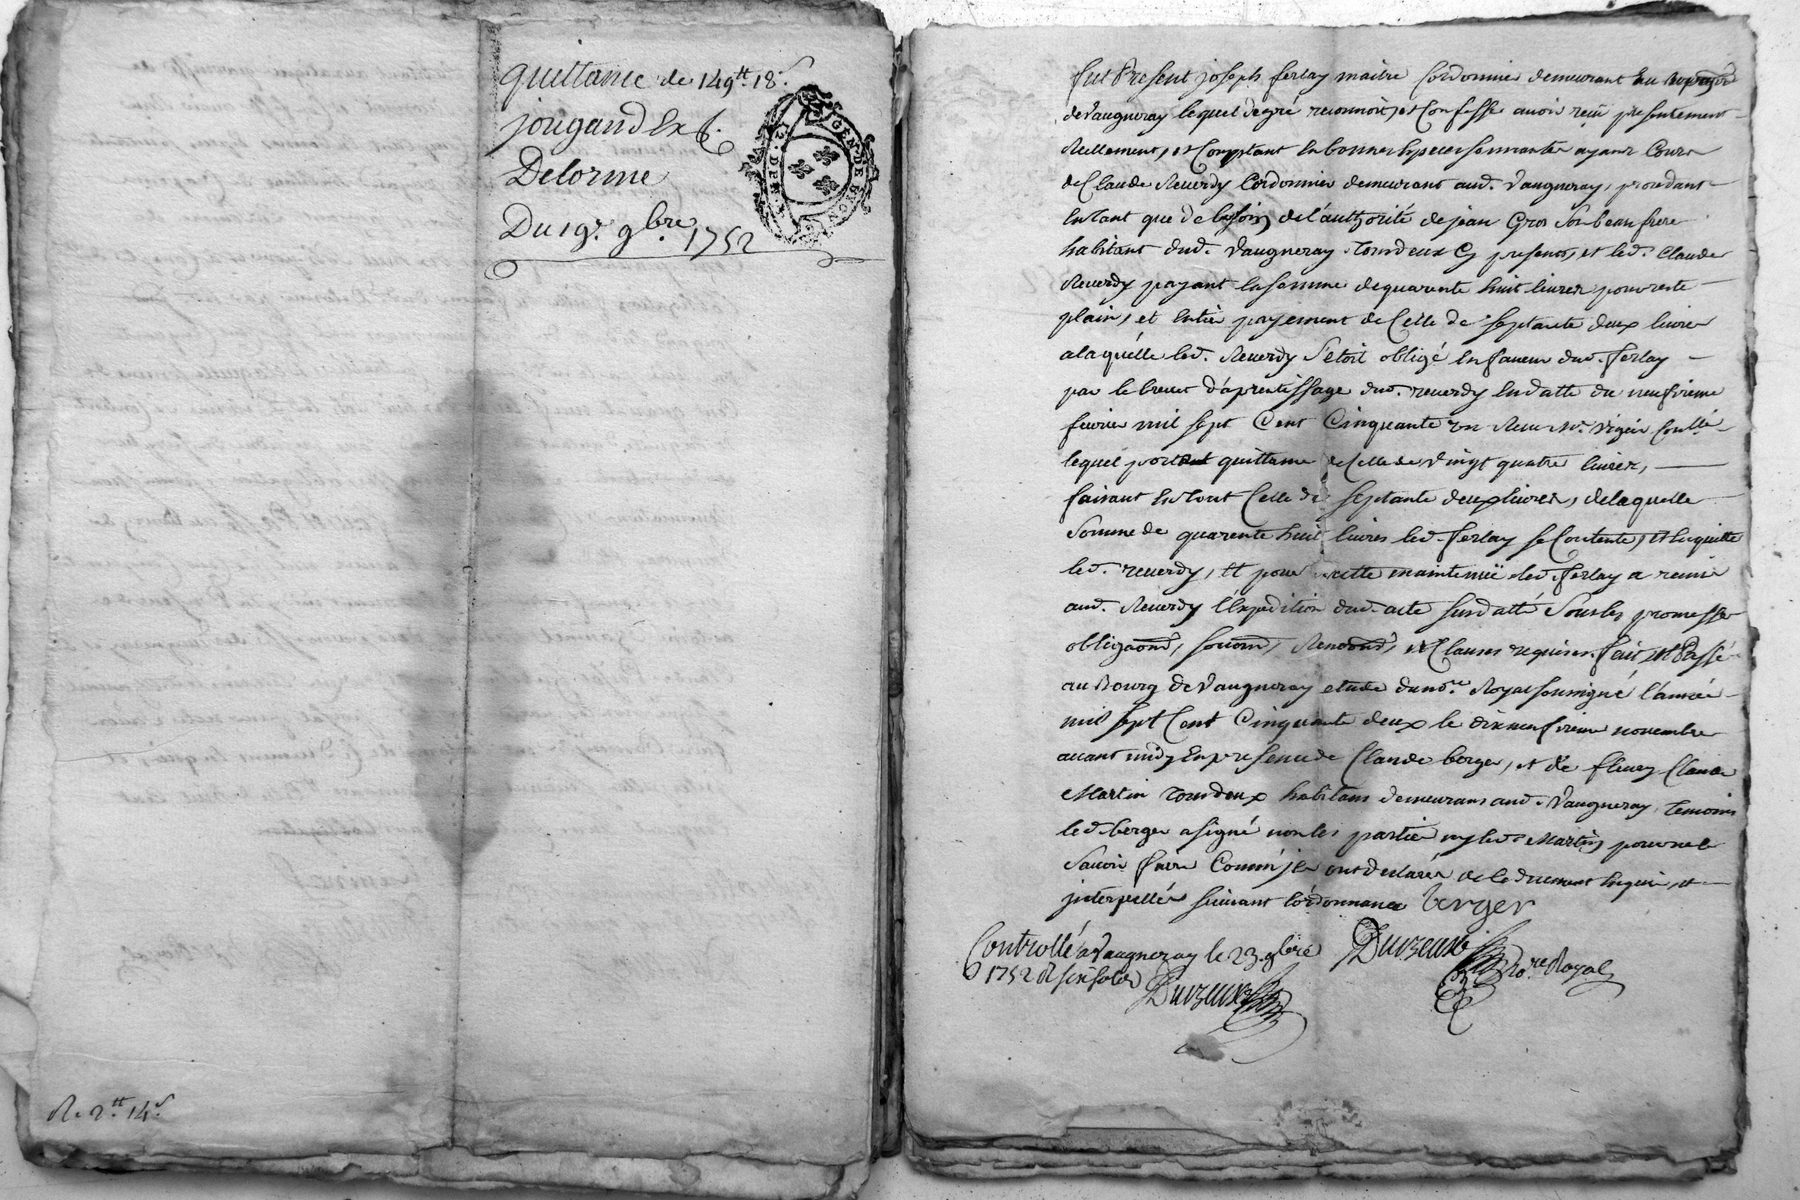 quittance de 149ᵗᵗ 18ˢ
jougand
Delorme
Du 19ᵉ 9bre 1752
GEN·DE LYON
R. 2ᵗᵗ 14ˢ
fut Present joseph ferlay maitre Cordonnier demeurant au bourg
de Vaugneray lequel de gré reconnoit, et Confesse avoir reçu presentement
Reellement, et Comptant en bonnes especes sonnantes ayant Cours
de Claude Reverdy Cordonnier demeurant aud. Vaugneray, procedant
en tant que de besoin de l'authorité de jean Gros son beaufrere
habitant dud. Vaugneray Tous deux Cy presents, et led. Claude
Reverdy payant la somme de quarente huit livres pour reste
plain, et entier payement de Celle de septante deux livres
a laquelle led. Reverdy s'étoit obligé en faveur dud. ferlay
par le brevet d'aprentissage dud. reverdy en datte du neufvieme
fevrier mil sept Cent Cinquante un Reçu Mᵉ
lequel portant quittance de Celle de Vingt quatre livres,
faisant en tout Celle de septante deux livres, de laquelle
somme de quarente huit livres led. ferlay se Contente, et en quitte
led. reverdy, et pour maintenue led. ferlay a remis
aud. Reverdy l'Expedition dud. acte susdatté sous les promesses
obligaons, soumons, Renoaons, et Clauses requises. fait et Passé
au Bourg de Vaugneray etude du noʳᵉ Royal soussigné l'année
mil sept Cent Cinquante deux le dix neufvieme novembre
avant midy En presence de Claude berger, et de fleury Claude
Martin Tous deux habitans demeurans aud. Vaugneray, Temoins
led. berger a signé non les parties ny led. Martin pour ne le
savoir faire Comm'ils ont declarés de ce duement enquis, et
interpellés suivant l'ordonnance berger
Controllé a Vaugneray le 23 9bre
1752 R six sols
Noʳᵉ Royal